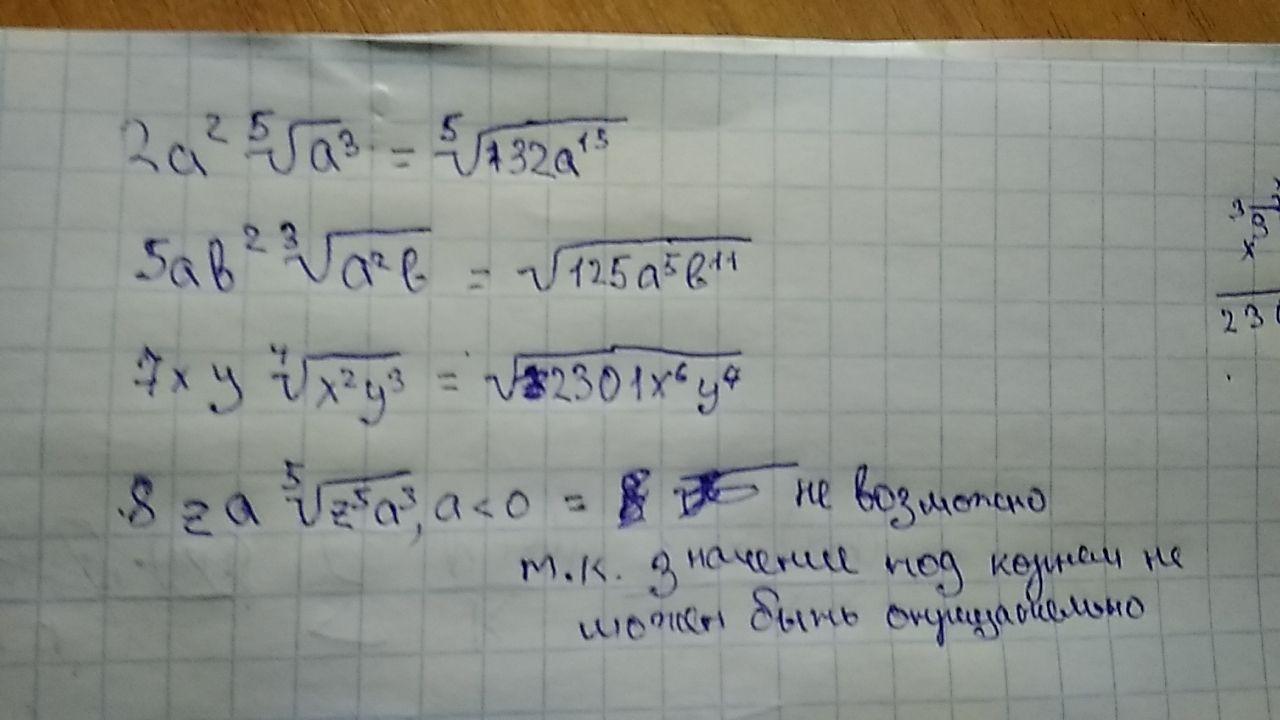 2a² ⁵√a³ = ⁵√32a¹³
5ab² ³√a²b = √125a⁵b¹¹
7xy ⁴√x²y³ = √2301x⁶y⁴
8za ⁵√z⁵a³, a<0 = не возможно
т.к. значение под корнем не
может быть отрицательно
3
9
x
23